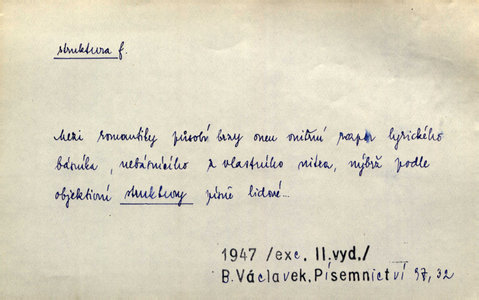 struktura f.
Mezi romantiky působí brzy onen vnitřní rozpor lyrického
básníka, nebásnícího z vlastního nitra, nýbrž podle
objektivní struktury písně lidové...
1947 /exc. II.vyd./
B.Václavek, Písemnictví 97, 32